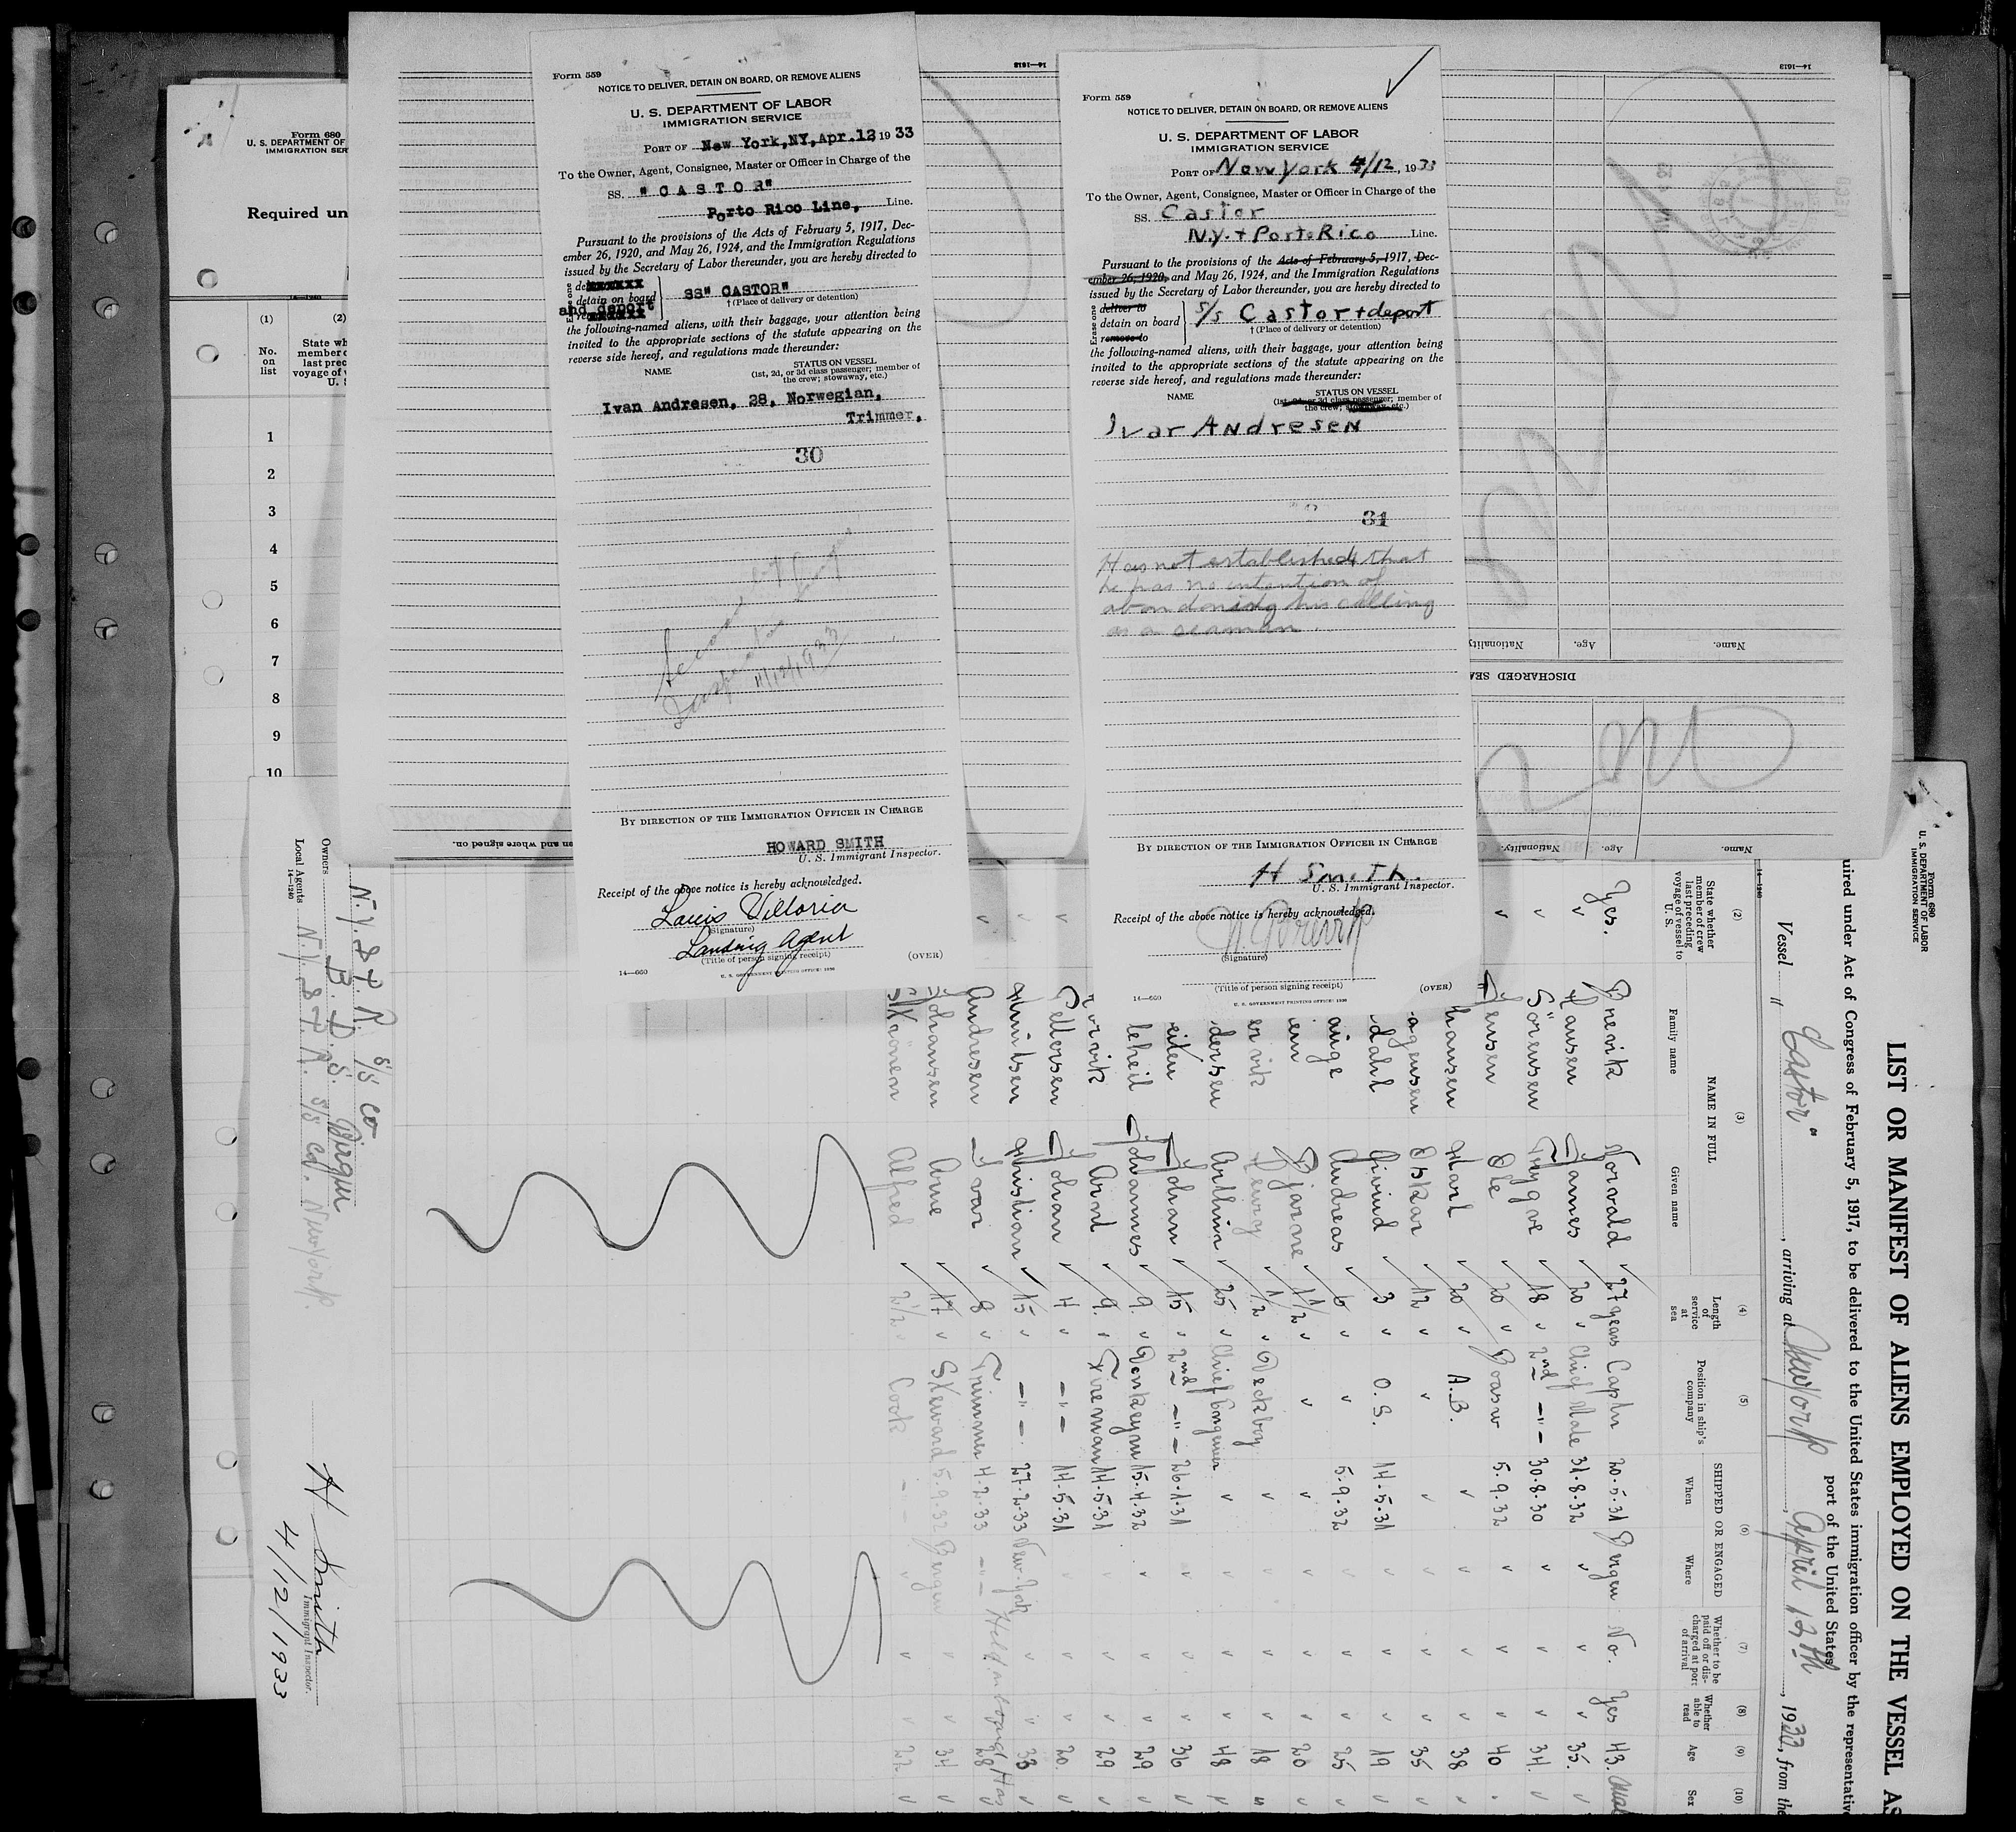 Form 559
NOTICE TO DELIVER, DETAIN ON BOARD, OR REMOVE ALIENS
U. S. DEPARTMENT OF LABOR
IMMIGRATION SERVICE
PORT OF New York,NY,Apr.12, 19 33
To the Owner, Agent, Consignee, Master or Officer in Charge of the
SS. "CASTOR"
Porto Rico Line, Line.
Pursuant to the provisions of the Acts of February 5, 1917, Dec-
ember 26, 1920, and May 26, 1924, and the Immigration Regulations
issued by the Secretary of Labor thereunder, you are hereby directed to
detain on board
and deport
SS" CASTOR"
† (Place of delivery or detention)
the following-named aliens, with their baggage, your attention being
invited to the appropriate sections of the statute appearing on the
reverse side hereof, and regulations made thereunder:
NAME
STATUS ON VESSEL
(1st, 2d, or 3d class passenger; member of
the crew; stowaway, etc.)
Ivan Andresen, 28, Norwegian,
Trimmer.
30
BY DIRECTION OF THE IMMIGRATION OFFICER IN CHARGE
HOWARD SMITH
U. S. Immigrant Inspector.
Receipt of the above notice is hereby acknowledged.
Louis Villoria
(Signature)
Landing Agent
(Title of person signing receipt)
14—660
U. S. GOVERNMENT PRINTING OFFICE: 1930
(OVER)
Form 559
NOTICE TO DELIVER, DETAIN ON BOARD, OR REMOVE ALIENS
U. S. DEPARTMENT OF LABOR
IMMIGRATION SERVICE
PORT OF New York 4/12, 1933
To the Owner, Agent, Consignee, Master or Officer in Charge of the
SS. Castor
N.Y. + Porto Rico Line.
Pursuant to the provisions of the Acts of February 5, 1917, Dec-
ember 26, 1920, and May 26, 1924, and the Immigration Regulations
issued by the Secretary of Labor thereunder, you are hereby directed to
Erase one
deliver to
detain on board
remove to
S/s Castor + deport
† (Place of delivery or detention)
the following-named aliens, with their baggage, your attention being
invited to the appropriate sections of the statute appearing on the
reverse side hereof, and regulations made thereunder:
NAME
STATUS ON VESSEL
(1st, 2d, or 3d class passenger; member of
the crew; stowaway, etc.)
Ivar Andresen
31
Has not established that
he has no intention of
abandoning his calling
as a seaman.
BY DIRECTION OF THE IMMIGRATION OFFICER IN CHARGE
H Smith.
U. S. Immigrant Inspector.
Receipt of the above notice is hereby acknowledged.
(Signature)
(Title of person signing receipt)
14—660
U. S. GOVERNMENT PRINTING OFFICE: 1930
(OVER)
Form 680
U. S. DEPARTMENT OF
IMMIGRATION SER
Required un
14—1240
(1)
(2)
No.
on
list
State wh
member o
last prec
voyage of v
U. S
1
2
3
4
5
6
7
8
9
10
14—1613
Name.
Age.
Nationality
DISCHARGED SEA
Name.
Age.
Nationality.
en and where signed on.
Form 680
U. S. DEPARTMENT OF LABOR
IMMIGRATION SERVICE
LIST OR MANIFEST OF ALIENS EMPLOYED ON THE VESSEL AS
uired under Act of Congress of February 5, 1917, to be delivered to the United States immigration officer by the representative
port of the United States
Vessel " Castor", arriving at New York, April 12th, 1933, from the
14—1240
(2)
State whether
member of crew
last preceding
voyage of vessel to
U. S.
(3)
NAME IN FULL
Family name
Given name
(4)
Length
of
service
at
sea
(5)
Position in ship's
company
(6)
SHIPPED OR ENGAGED
When
Where
(7)
Whether to be
paid off or dis-
charged at port
of arrival
(8)
Whether
able to
read
(9)
Age
(10)
Sex
Yes. Brevik Norvald 27 years Captn 20.5.31 Bergen No. Yes 43. Male
Hansen James 20 Chief Mate 31.8.32 35.
Sörensen Trygve 18 2nd -"- 30.8.30 34.
Jensen Ole 20 Boasw 5.9.32 40
hansen Karl 20 A.B. 38
agensen Oskar 12 35
dahl Eivind 3 O.S. 14.5.31 19
ainge Andreas 6 5.9.32 25
ein Bjarne 1 1/2 20
ervik Henry 1/2 Deckboy 18
dersen Arthur 25 Chief Engineer 48
eiten Johan 15 2nd -"- 26.1.31 36
leheil Johannes 9 Donkeym 15.4.32 29
orvik Arnt 9 Fireman 14.5.31 29
Pettersen Johan 4 -"- 14.5.31 20.
Kristian 15 -"- 27.2.33 New-York 33
Andresen Ivar 8 Trimmer 4.2.33 -"- Held on board Has 28
Johansen Arne 17 Steward 5.9.32 Bergen 34
Alfred 2 1/2 Cook 22
Owners B. D. S. Bergen
N.Y. & P. R. S/S Co
Local Agents N.Y. & P. R. S/S Co. New York.
14—1240
H Smith
Immigrant Inspector.
4/12/1933